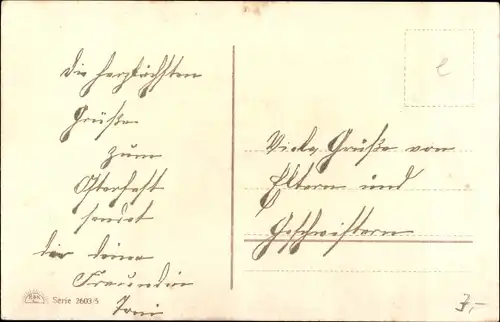 die herzlichsten
Grüße
zum
Osterfest
sendet
dir deine
Freundin
Toni
Viele Grüße von
Eltern und
Geschwistern
Serie 2603/5
7,-
e